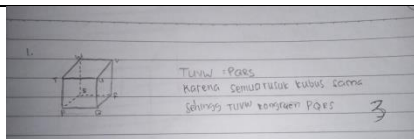 1.
TUVW = PQRS
Karena semua rusuk kubus sama
sehingg TUVW kongruen PQRS